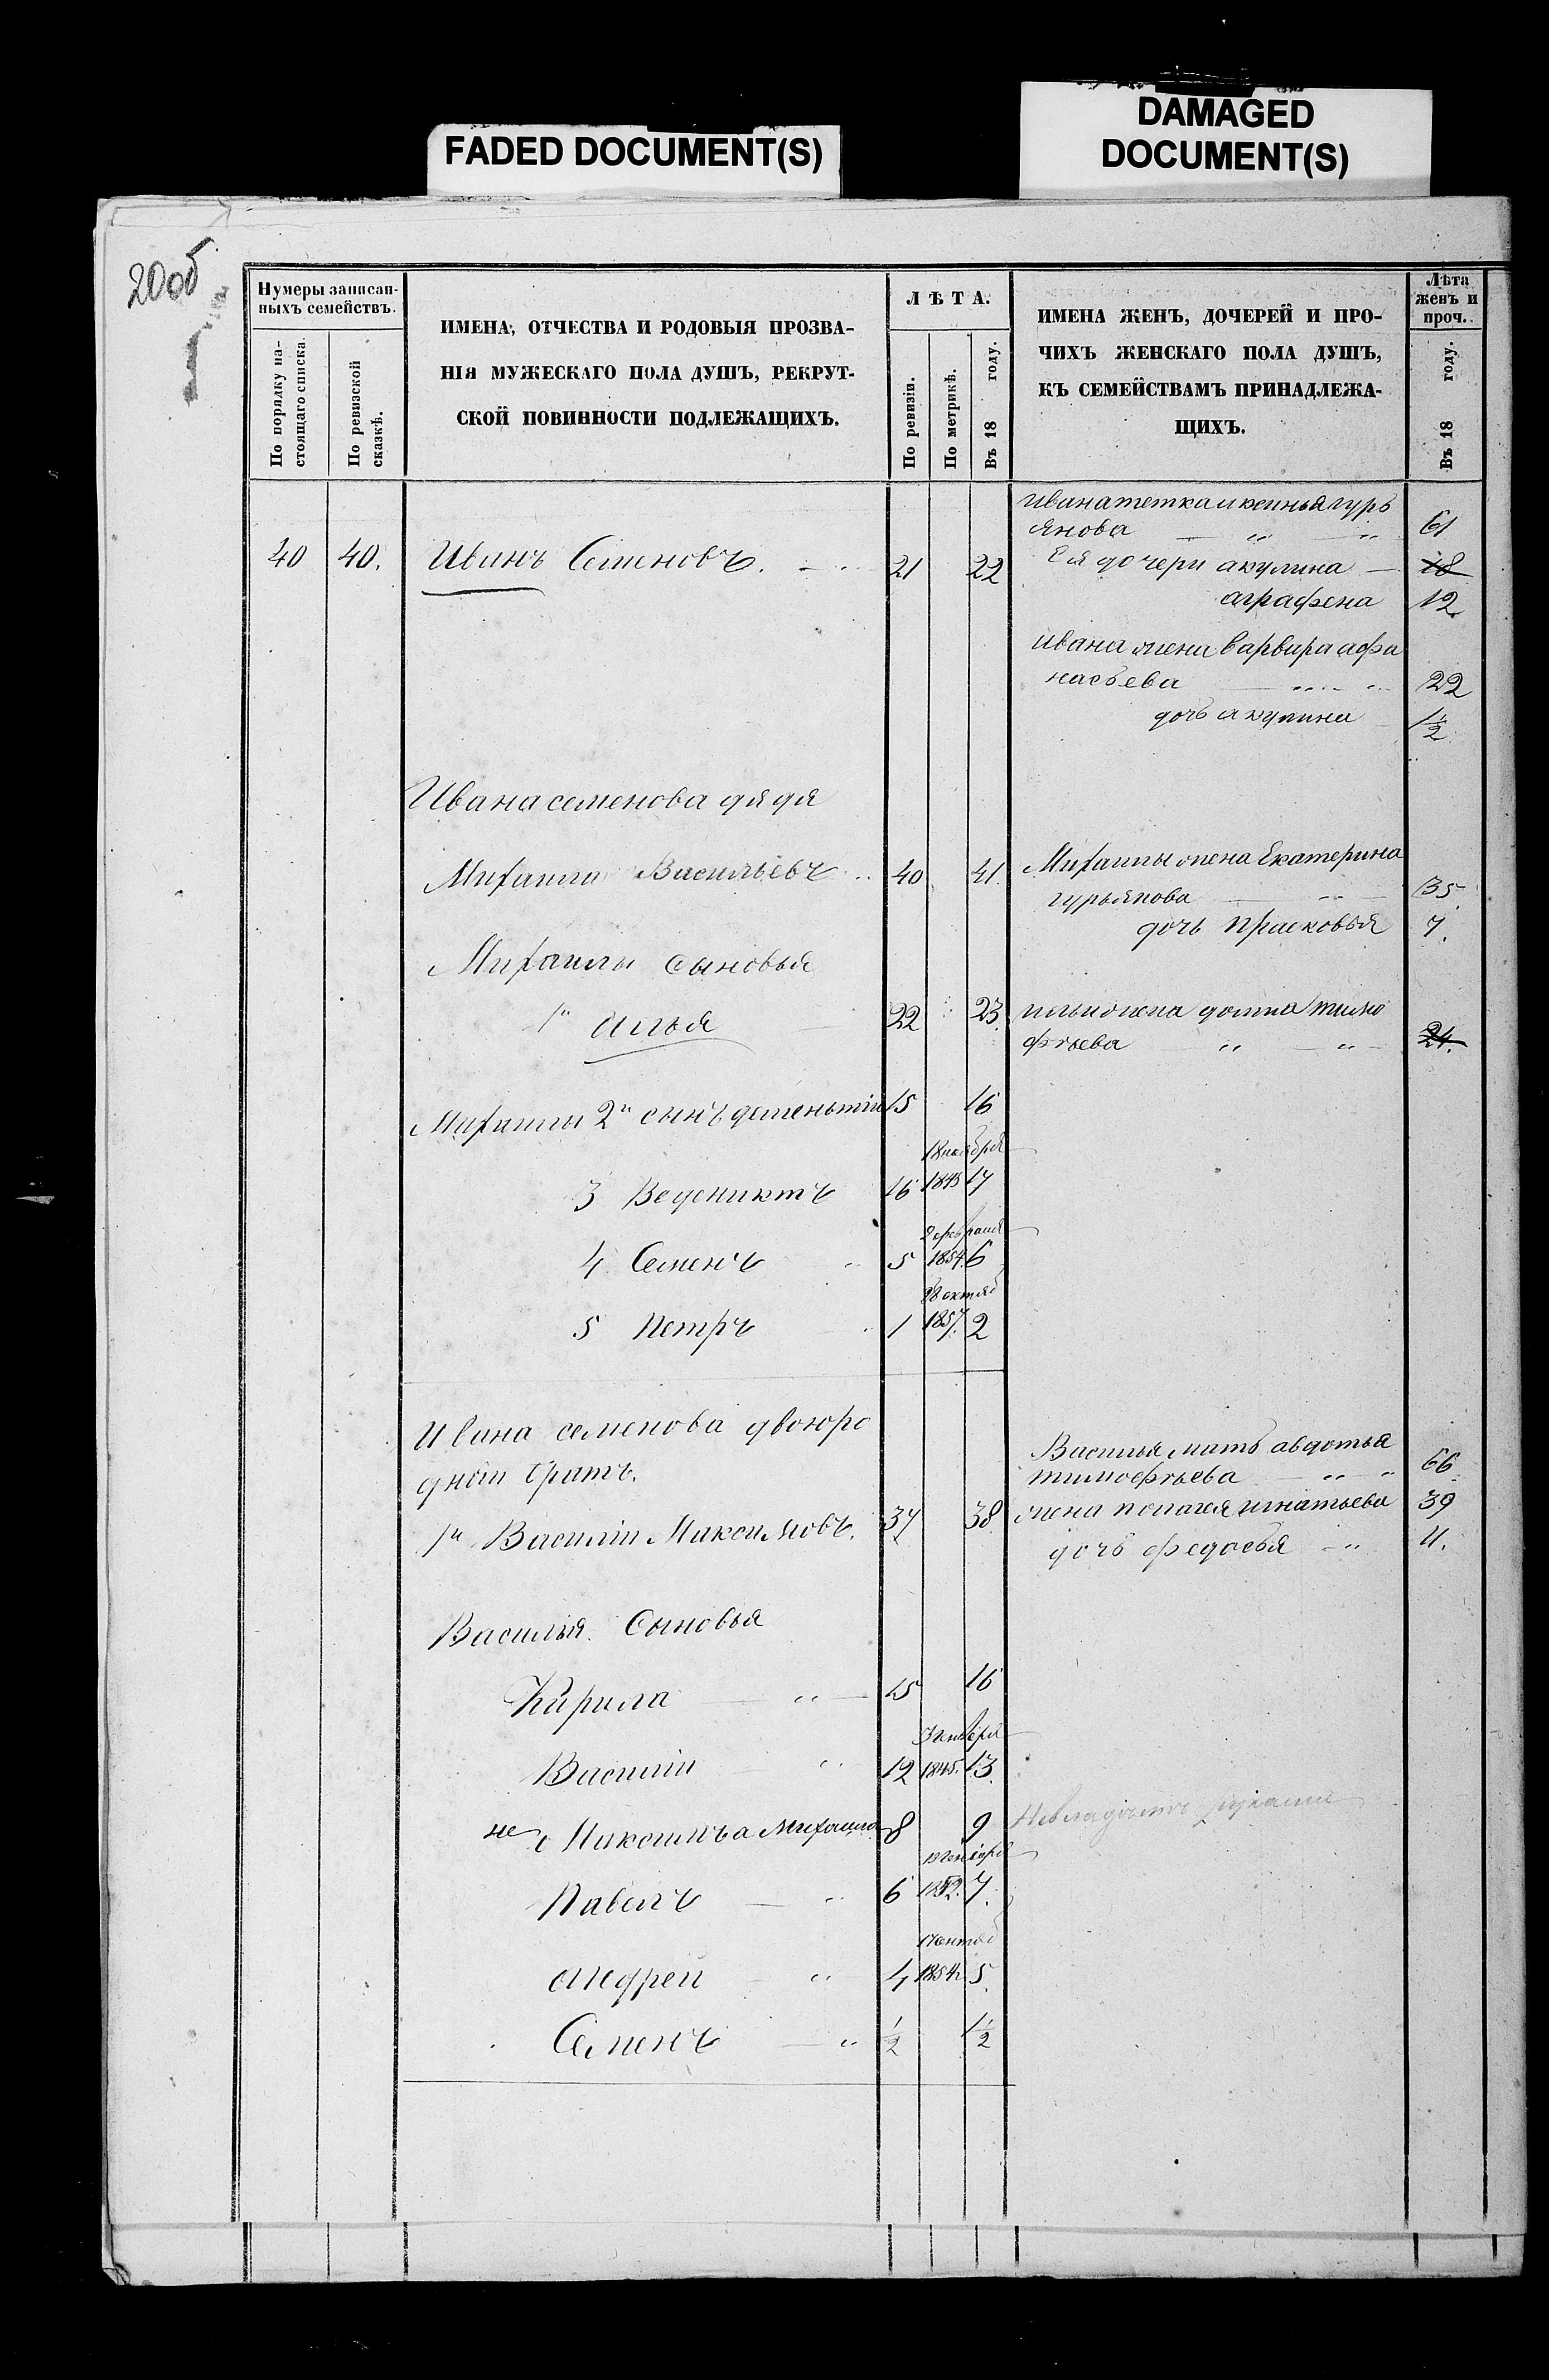 FADED DOCUMENT(S)
DAMAGED
DOCUMENT(S)
20об
Нумеры записан-
ныхъ семействъ.
По порядку на-
стоящаго списка.
По ревизской
сказкѣ.
ИМЕНА, ОТЧЕСТВА И РОДОВЫЯ ПРОЗВА-
НІЯ МУЖЕСКАГО ПОЛА ДУШЪ, РЕКРУТ-
СКОЙ ПОВИННОСТИ ПОДЛЕЖАЩИХЪ.
ЛѢТА.
По ревизіи.
По метрикѣ.
Въ 18 году.
ИМЕНА ЖЕНЪ, ДОЧЕРЕЙ И ПРО-
ЧИХЪ ЖЕНСКАГО ПОЛА ДУШЪ,
КЪ СЕМЕЙСТВАМЪ ПРИНАДЛЕЖА-
ЩИХЪ.
Лѣта
женъ и
проч.
Въ 18 году.
Ивана тетка аксинья гурь
янова 61
40 40. Иванъ Семеновъ. 21 22 Ея дочери акулина 18
аграфена 12
ивана жена варвара афа
насьева 22
дочь акулина 1 1/2
Ивана семенова дядя
Михаила Васильевъ 40 41 Михаилы жена Екатерина
гурьянова 35
дочь прасковья 7.
Михаилы сыновья
1й илья 22 23 ильи жена домна тимо
фѣева 24.
Михаилы 2й сынъ деменьтій 15 16
18 ноября
3 Ведениктъ 16 1843 17
2 февраля
4 Семенъ 5 1854 6
28 октяб
5 Петръ 1 1857. 2
Ивана семенова двоюро
дной братъ.
Василья мать авдотья
тимофѣева 66
1й Василій Максимовъ. 37 38 жена пелагея игнатьева 39
дочь федосья 11.
Василья Сыновья
Кирила 15 16
Василій 12 1845. 13
не Михаила 8 9
Павелъ 6 1852. 7.
андрей 4 1854 5.
Семенъ 1/2 1 1/2